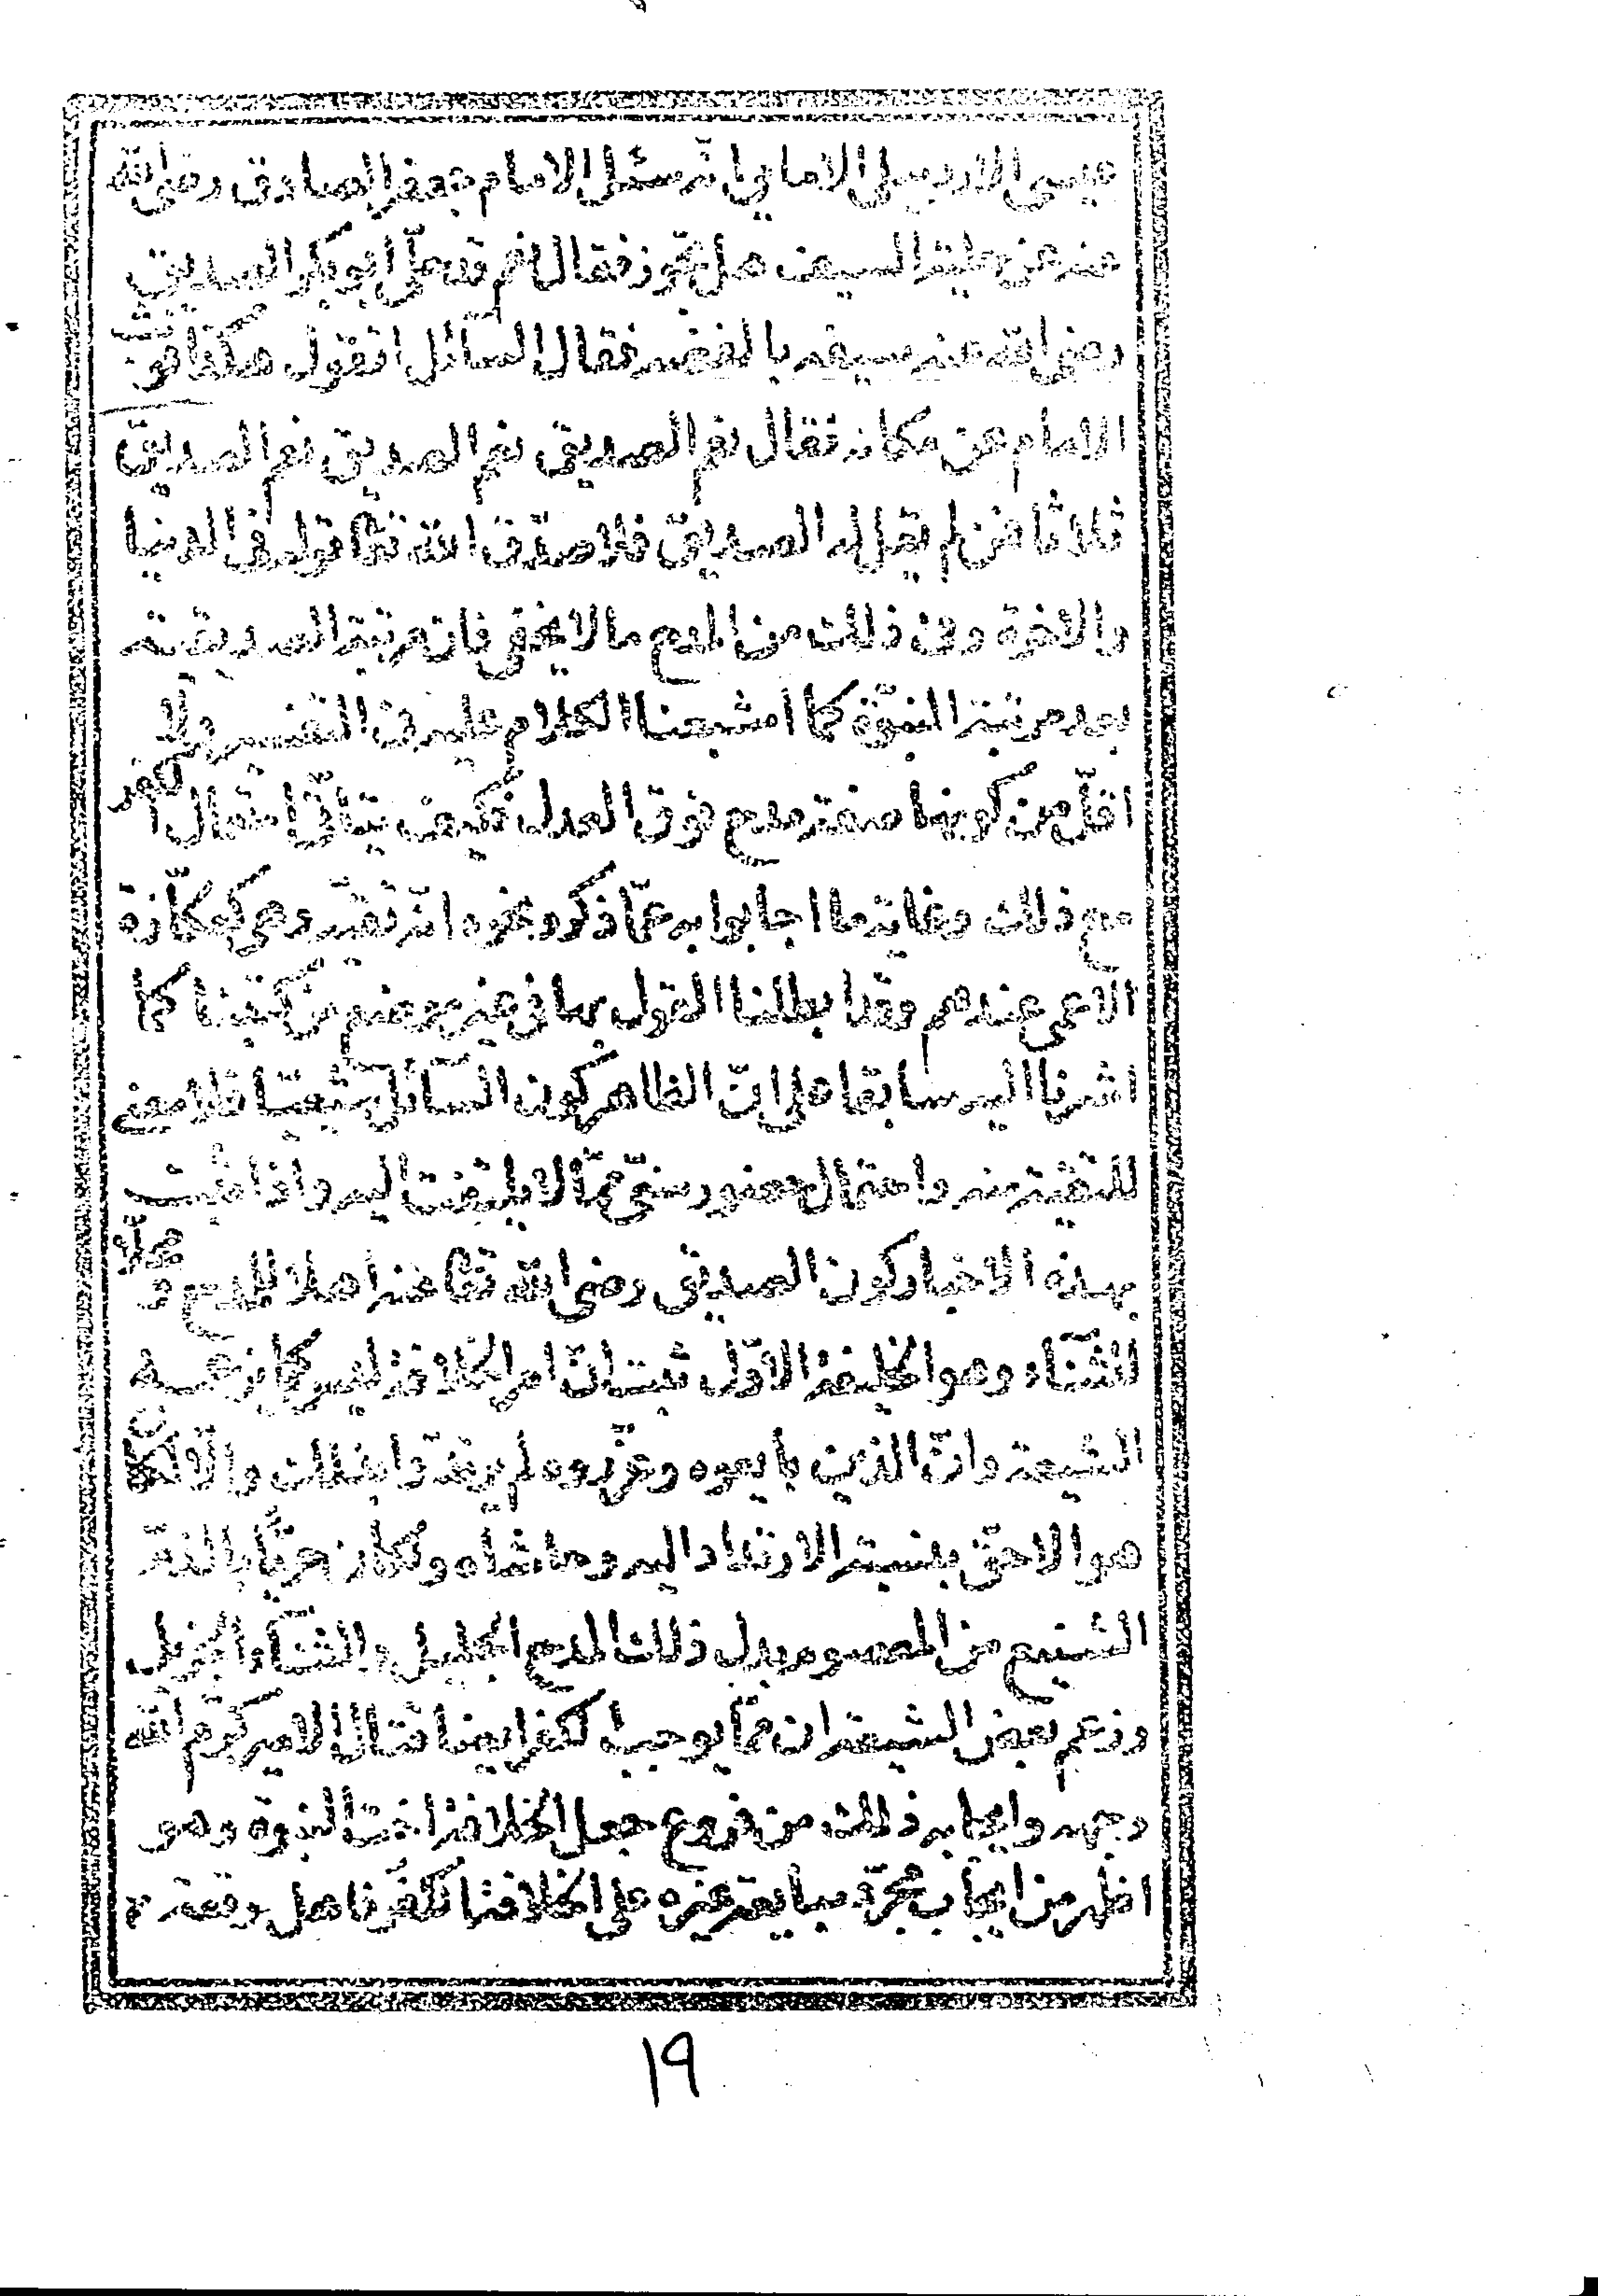 عيسى الاردبيلى الامامى انه سئل الامام جعفر الصادق رضى الله
عنه عن حلية السيف هل تجوز فقال نعم قد حلى ابو بكر الصديق
رضى الله عنه سيفه بالفضه فقال السائل اتقول هكذا فوثب
الامام عن مكانه فقال نعم الصديق نعم الصديق نعم الصديق
ثلاثا فمن لم يقل له الصديق فلا صدق الله تعا قوله فى الدنيا
والاخرة وفى ذلك من المدح ما لا يخفى فان مرتبة الصديقية
بعد مرتبة النبوة كما اشبعنا الكلام عليه فى التفسير ولا
اقل من كونها صفة مدح فوق العدل فكيف يتأتى احتمال
مع ذلك وغاية ما اجابوا به عما ذكر ونحوه انه تقية وهى كعكازة
الاعمى عندهم وقد ابطلنا القول بها فى غير موضع من كتبنا كما
اشرنا اليه سابقا على ان الظاهر كون السائل شيعيا فلا معنى
للتقية منه واحتمال حضور سنى مما لا يلتفت اليه واذا ثبت
بهذه الاخبار كون الصديق رضى الله تعا عنه اهلا للمدح
الثناء وهو الخليفة الاول ثبت ان امر الخلافة ليس كما زعمه
الشيعة وان الذين بايعوه وعزروه لم يرتدوا بذلك والا لكان
هو الاحق بنسبة الارتداد اليه وحاشاه ولكان حريا بالذم
الشنيع من المعصوم بدل ذلك المدح الجليل والثناء الجزيل
وزعم بعض الشيعة ان مما يوجب الكفر ايضا قتال الامير كرم الله
وجهه وايجابه ذلك من فروع جعل الخلافة اخت النبوة وهو
اظهر من ايجاب مجرد مبايعة غيره على الخلافة الكفر فاهل وقعة
١٩